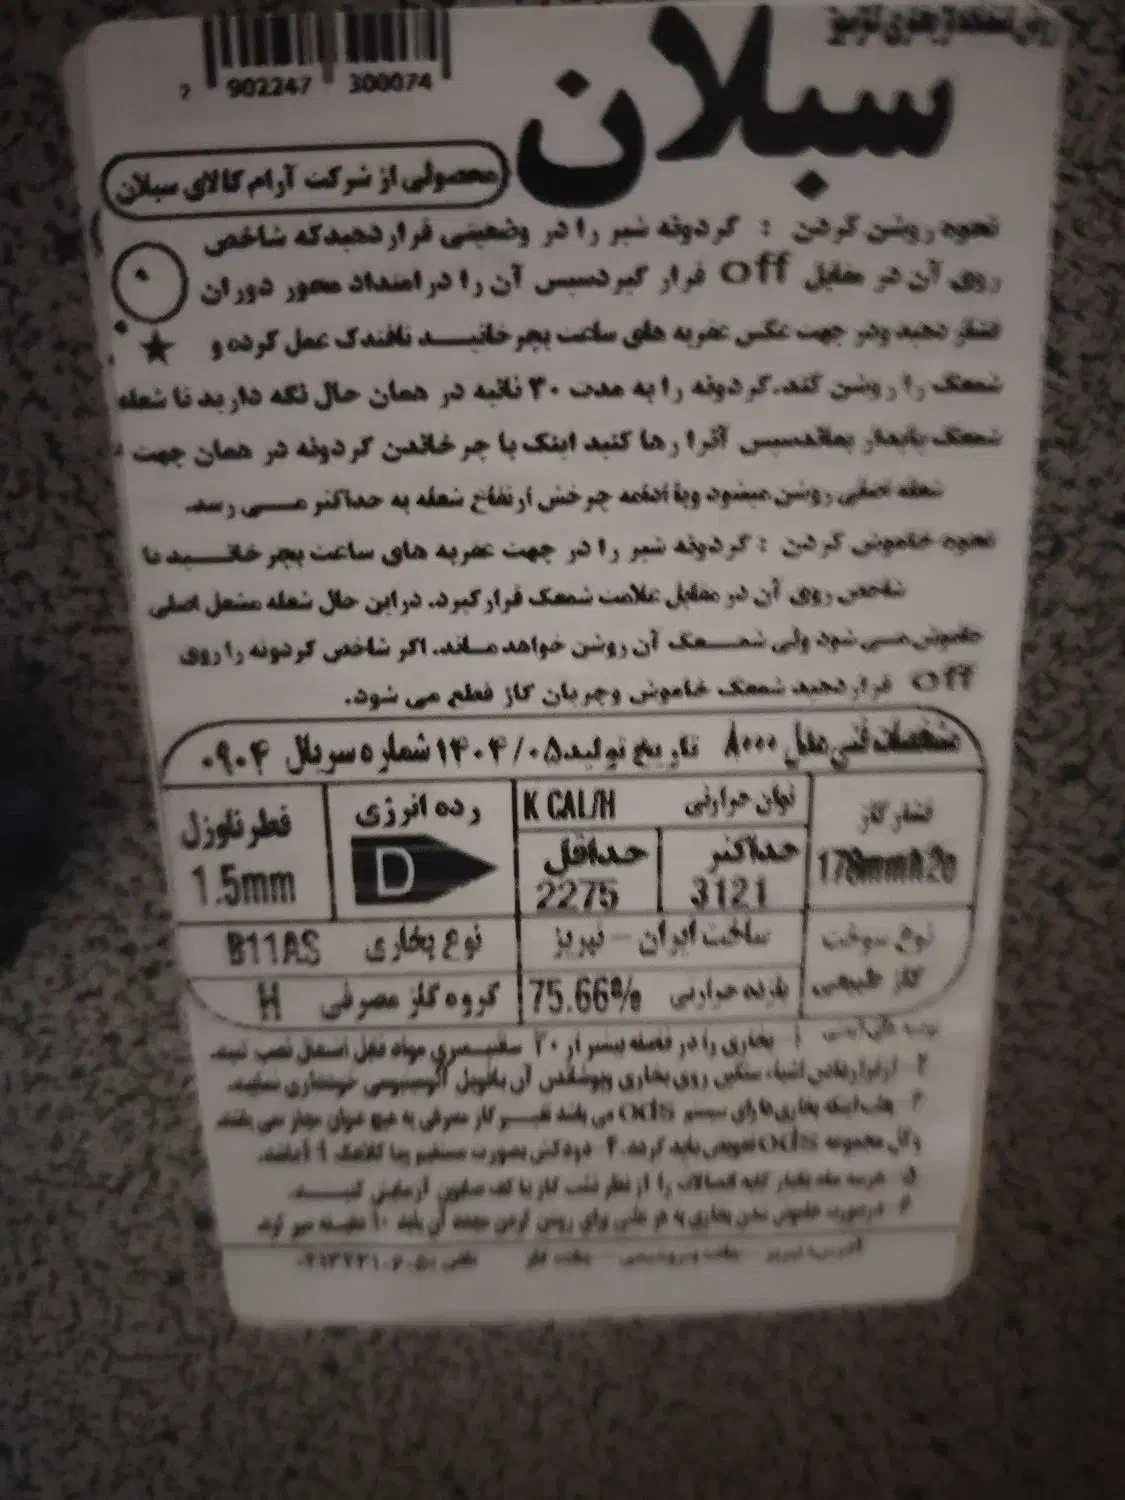 سبلان
7 902247 300074
محصولی از شرکت آرام کالای سبلان
نحوه روشن کردن : گردونه شیر را در وضعیتی قرار دهیدکه شاخص
روی آن در مقابل Off قرار گیردسپس آن را درامتداد محور دوران
فشار دهید ودر جهت عکس عقربه های ساعت بچرخانید تافندک عمل کرده و
شمعک را روشن کند.گردونه را به مدت ۳۰ ثانیه در همان حال نگه دارید تا شعله
شمعک پایدار بماندسپس آنرا رها کنید اینک با چرخاندن گردونه در همان جهت
شعله اصلی روشن میشود وبا ادامه چرخش ارتفاع شعله به حداکثر می رسد.
نحوه خاموش کردن : گردونه شیر را در جهت عقربه های ساعت بچرخانید تا
شاخص روی آن در مقابل علامت شمعک قرارگیرد. دراین حال شعله مشعل اصلی
خاموش می شود ولی شمعک آن روشن خواهد ماند. اگر شاخص گردونه را روی
Off قراردهید شمعک خاموش وجریان گاز قطع می شود.
مشخصات فنی مدل ۸۰۰۰ تاریخ تولید ۱۴۰۴/۰۵ شماره سریال ۰۹۰۴
فشار گاز
178mmh2o
توان حرارتی K CAL/H
حداکثر
3121
حداقل
2275
رده انرژی
D
قطر ناوزل
1.5mm
نوع سوخت
گاز طبیعی
ساخت ایران - تبریز
نوع بخاری B11AS
بازده حرارتی 75.66%
گروه گاز مصرفی H
۱ - بخاری را در فاصله بیشتر از ۲۰ سانتیمتری مواد قابل اشتعال نصب
۲ - ازقراردادن اشیاء سنگین روی بخاری وپوشاندن آن خودداری نمایید.
بخاری دارای سیستم ods می باشد تغییر گاز مصرفی به هیچ عنوان مجاز نمی باشد
وکل مجموعه ods تعویض باید گردد. ۴- دودکش بصورت مستقیم وبا کلاهک
۵- کلیه اتصالات را از نظر نشت گاز با کف صابون آزمایش کنید.
۶- درصورت خاموش شدن بخاری به هر علتی برای روشن کردن مجدد آن باید ۱۰ دقیقه صبر کرد